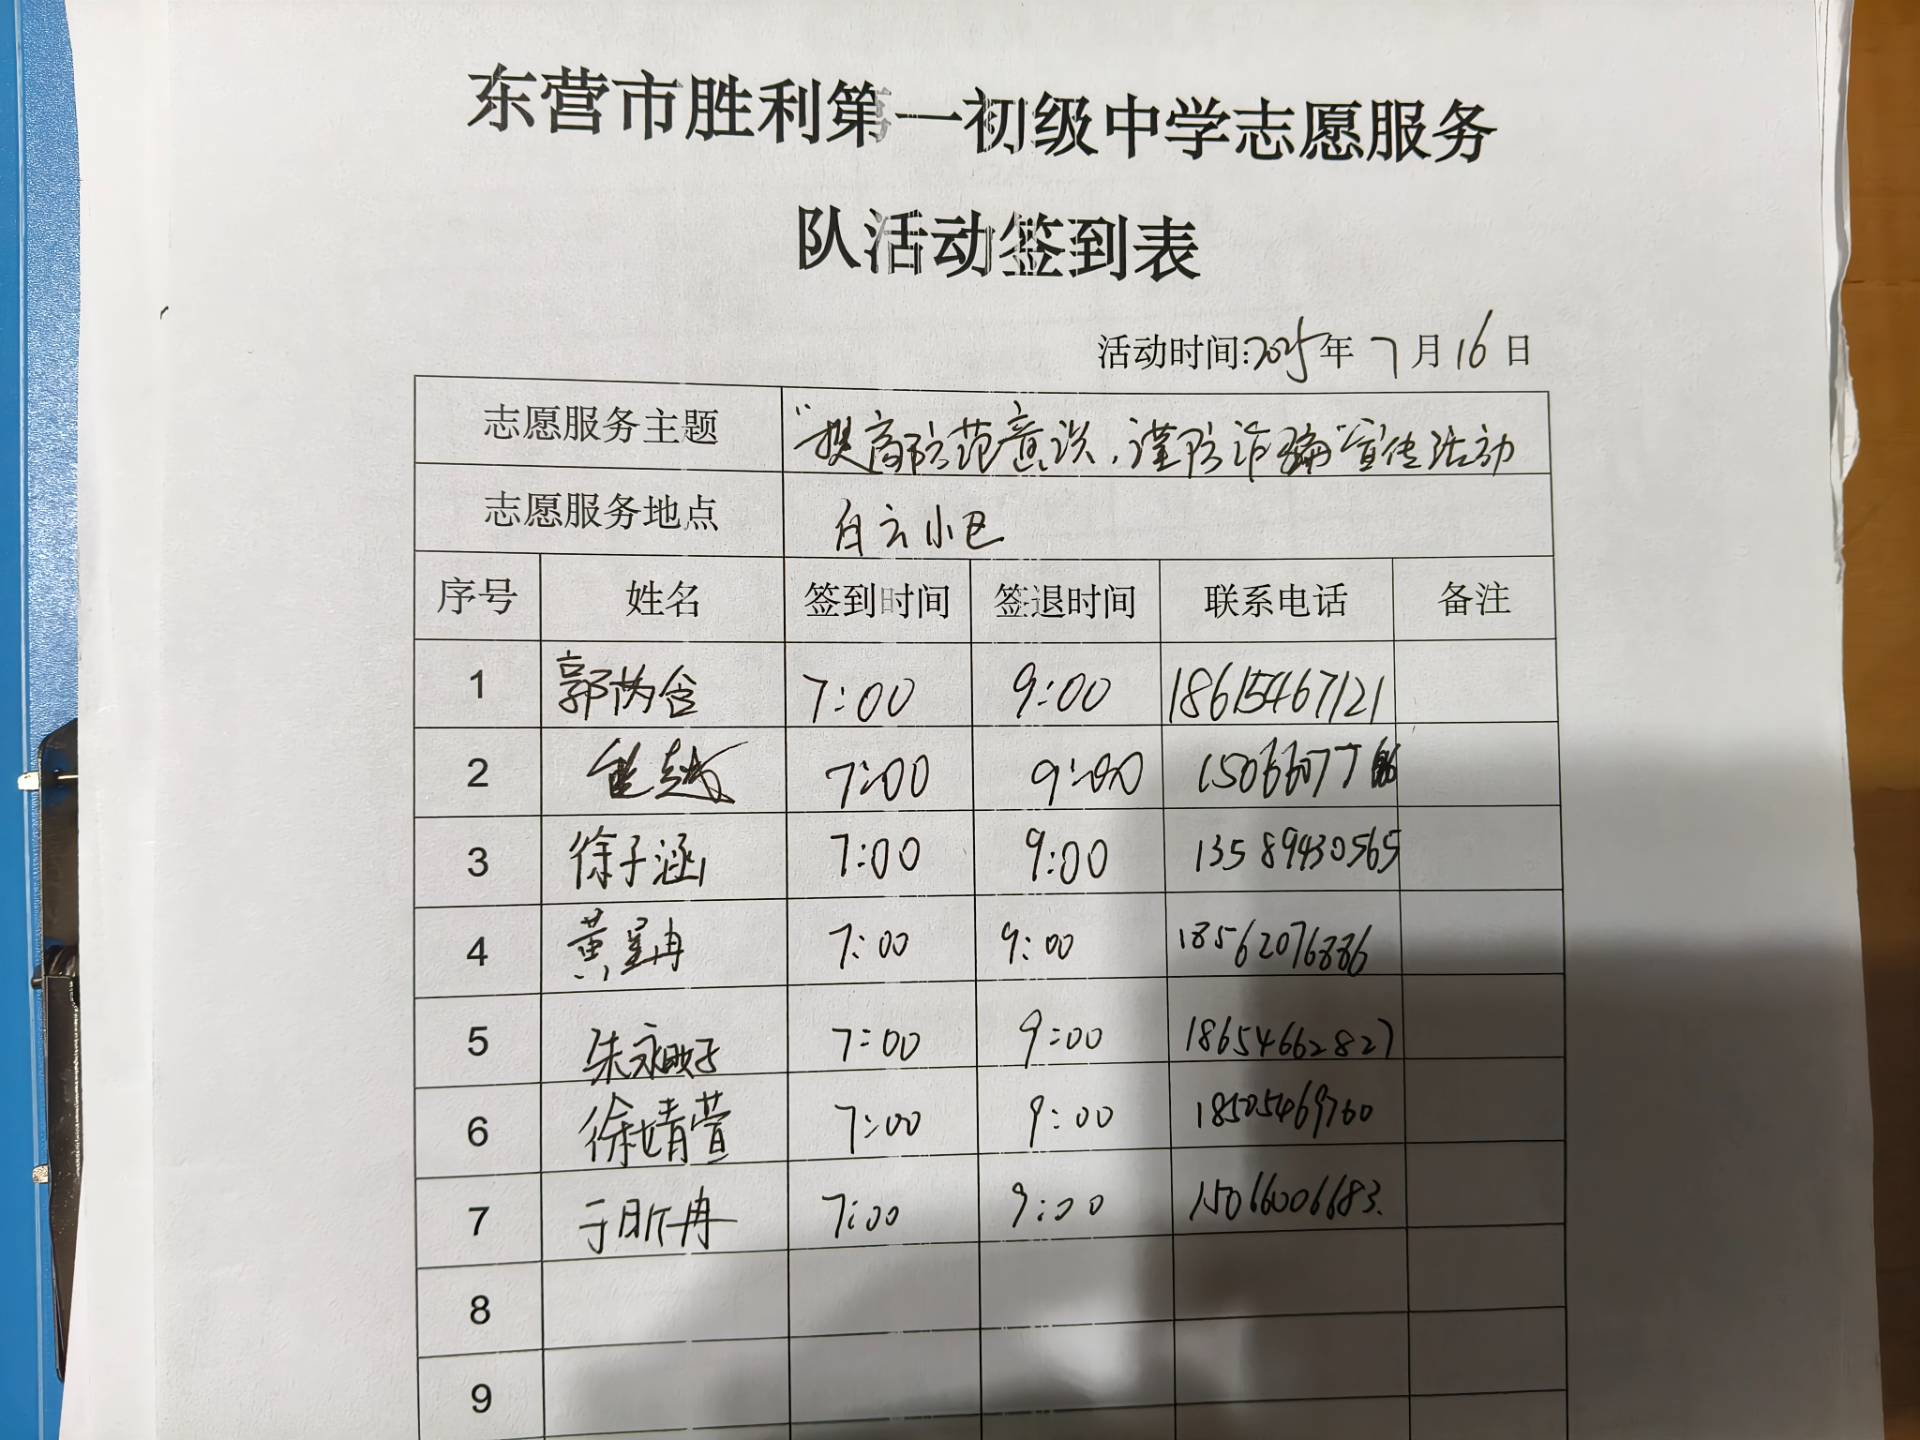 东营市胜利第一初级中学志愿服务
队活动签到表
活动时间:2025年 7 月 16 日
志愿服务主题 "提高防范意识,谨防诈骗"宣传活动
志愿服务地点 白云小区
序号 姓名 签到时间 签退时间 联系电话 备注
1 郭 含 7:00 9:00 18615467121
2 7:00 9:00
3 徐子涵 7:00 9:00 13589430565
4 黄星冉 7:00 9:00 18562076886
5 朱永 7:00 9:00 18654662827
6 徐婧萱 7:00 9:00 18505469760
7 于昕冉 7:00 9:00 15066006683.
8
9